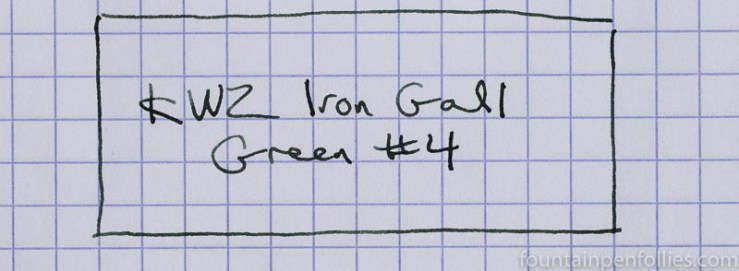 KWZ Iron Gall
Green #4
fountainpenfollies.com